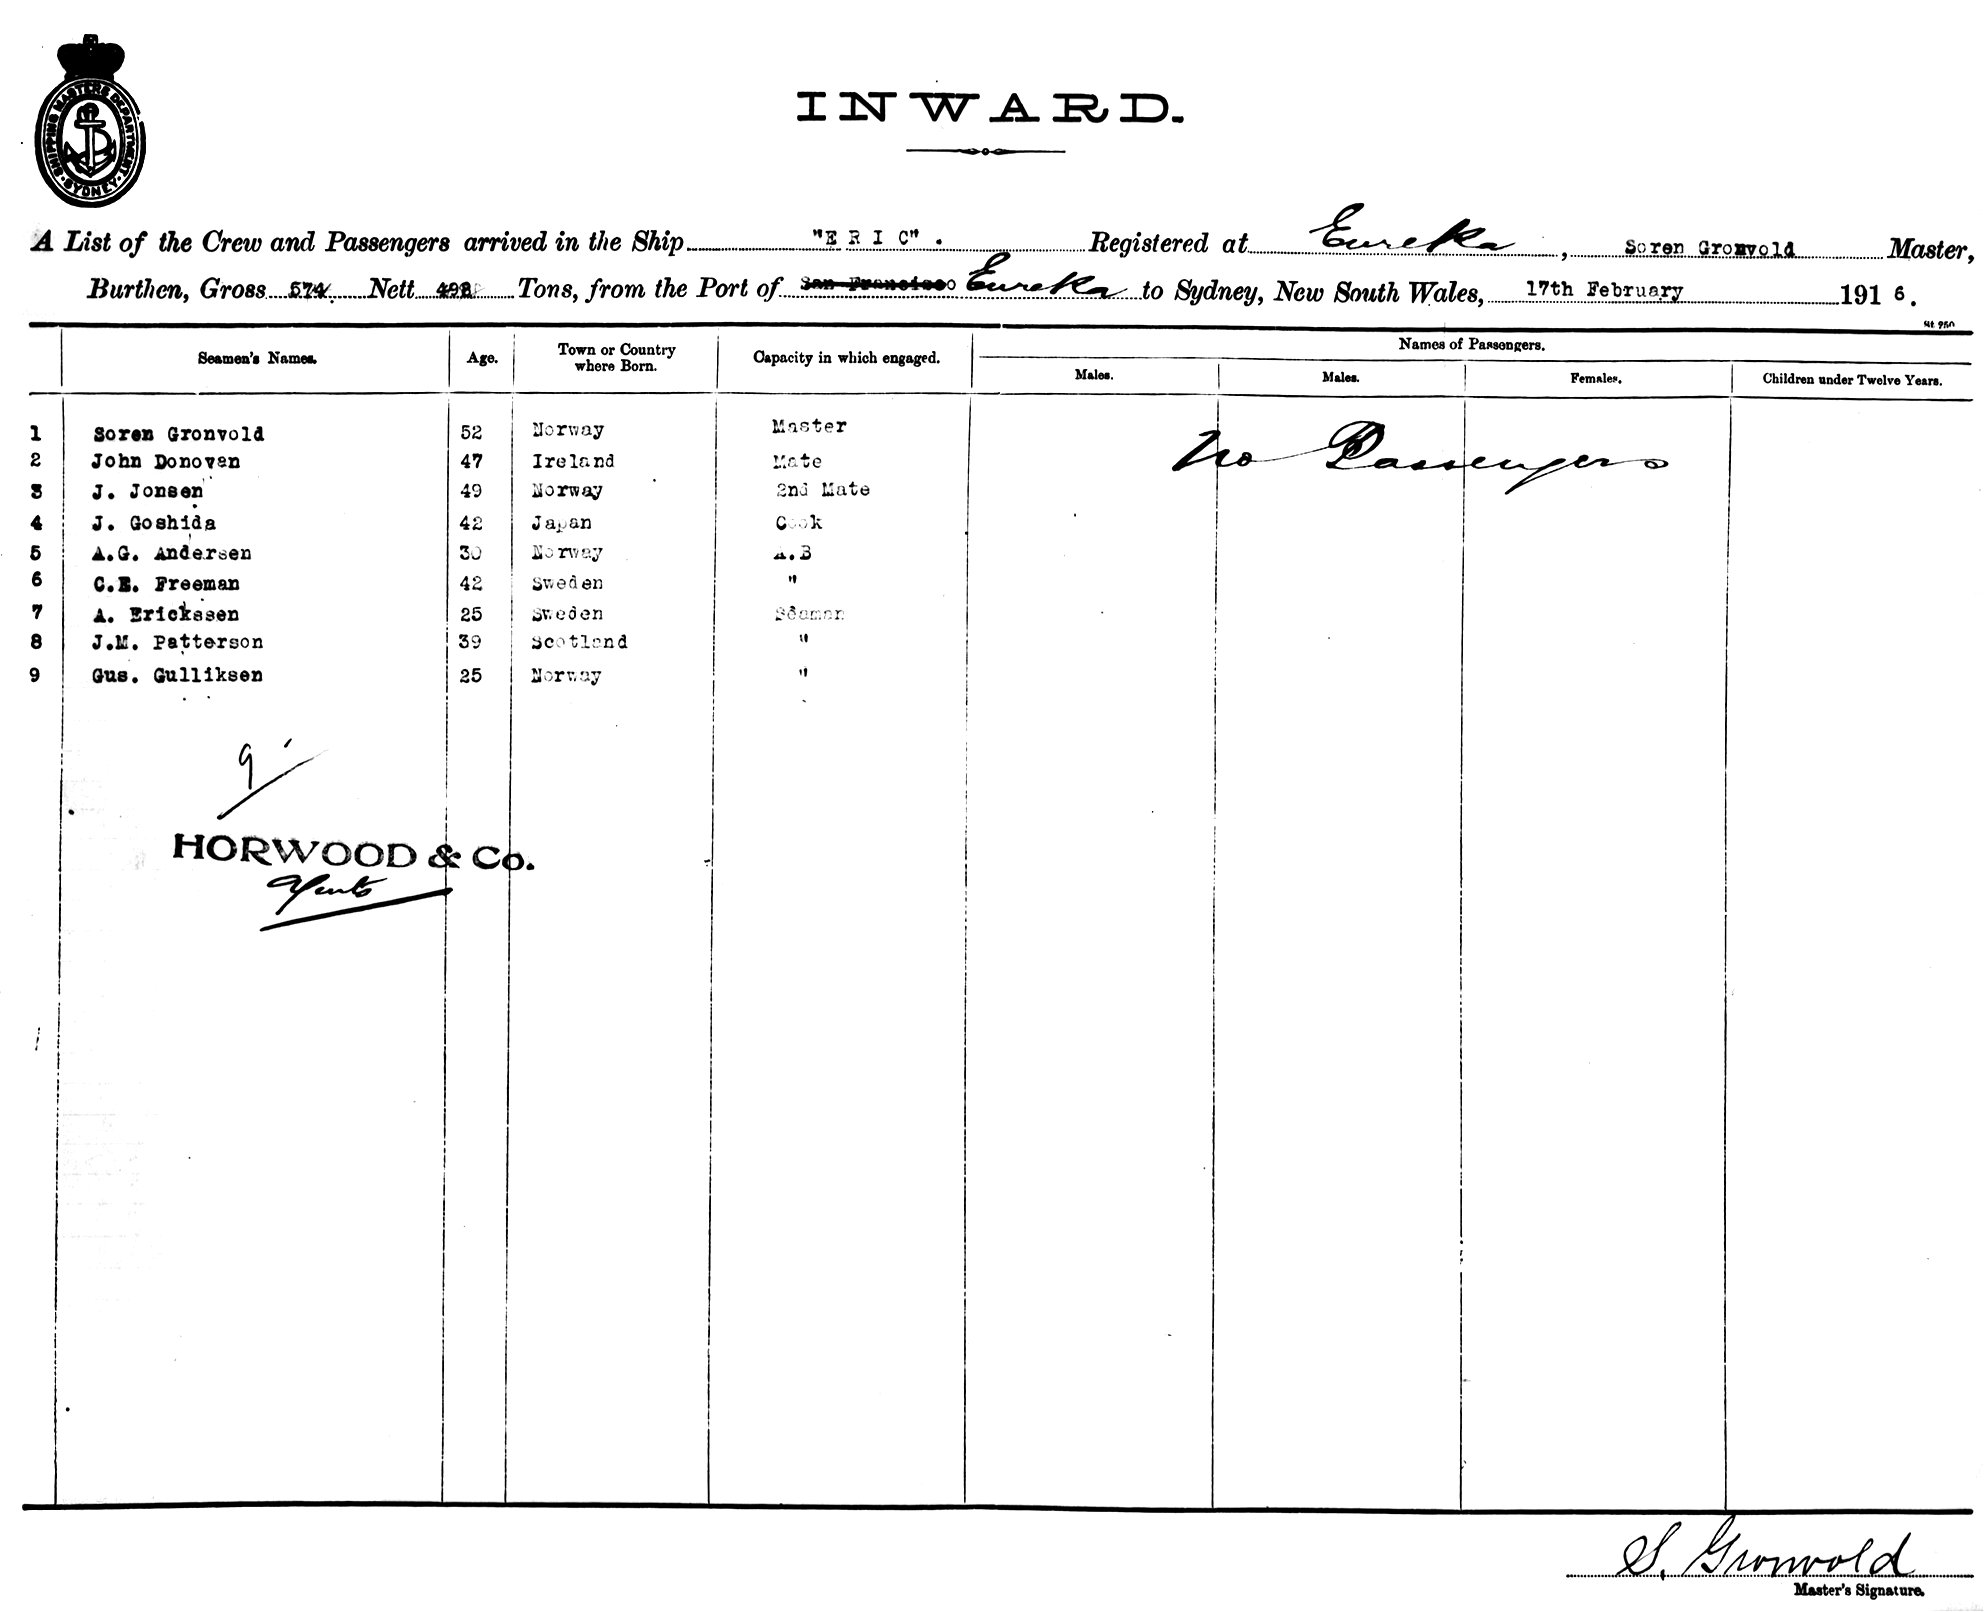 SHIPPING MASTERS DEPARTMENT
SYDNEY
INWARD.
A List of the Crew and Passengers arrived in the Ship "ERIC". Registered at Eureka, Soren Gronvold Master,
Burthen, Gross 574 Nett Tons, from the Port of San Francisco Eureka to Sydney, New South Wales, 17th February 1916.
St 950
Seamen's Names. Age. Town or Country where Born. Capacity in which engaged. Names of Passengers.
Males. Males. Females. Children under Twelve Years.
1 Soren Gronvold 52 Norway Master
2 John Donoven 47 Ireland Mate
3 J. Jonsen 49 Norway 2nd Mate
4 J. Goshida 42 Japan Cook
5 A.G. Andersen 30 Norway A.B
6 C.E. Freeman 42 Sweden "
7 A. Erickssen 25 Sweden Seaman
8 J.M. Patterson 39 Scotland "
9 Gus. Gulliksen 25 Norway "
No Passengers
9
HORWOOD & Co.
Agents
S. Gronvold
Master's Signature.